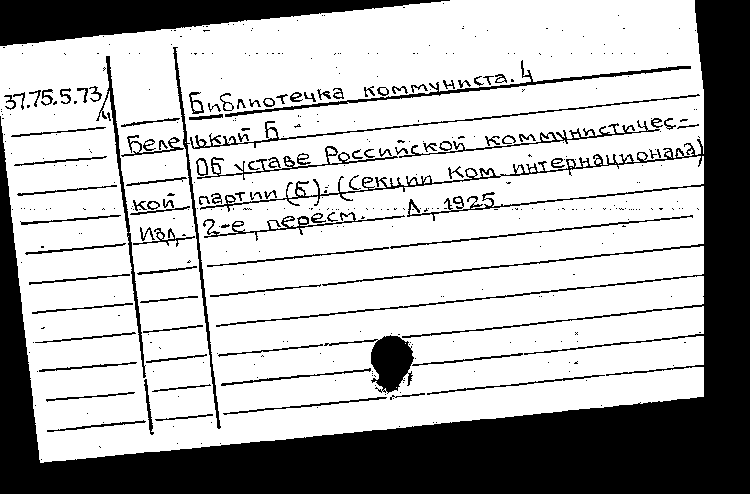 37.75.5.73/4
Библиотечка коммуниста. 4
Беленький, Б
Об уставе Российской коммунистичес-
кой партии (б). (Секции Ком интернационала)
Изд. 2-е, пересм. Л., 1925